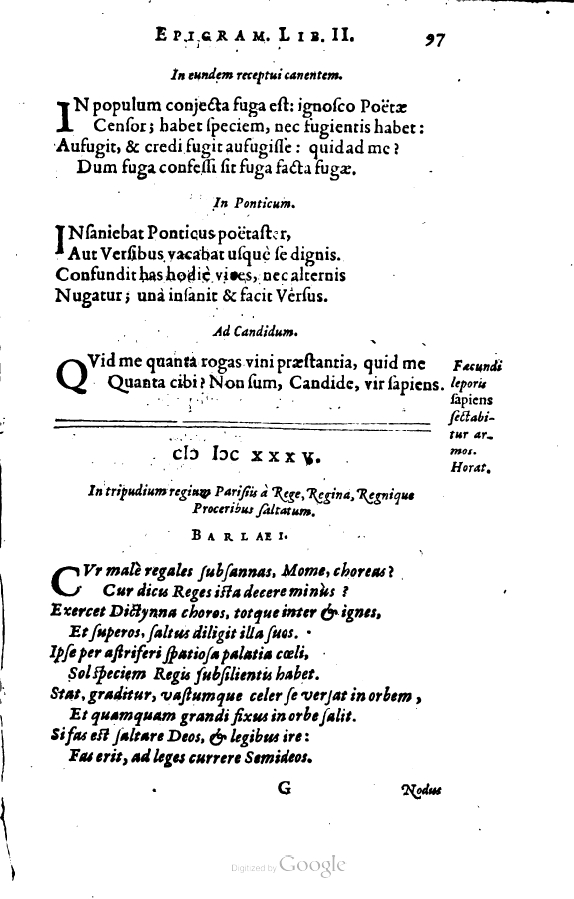 EPIGRAM. LIB. II. 97
In eundem receptui canentem.
IN populum conjecta fuga eſt: ignoſco Poëtæ
Cenſor; habet ſpeciem, nec fugientis habet:
Aufugit, & credi fugit aufugiſſe: quid ad me?
Dum fuga confeſſi ſit fuga facta fugæ.
In Ponticum.
INſaniebat Ponticus poëtaſter,
Aut Verſibus vacabat uſquè ſe dignis.
Confundit has hodiè vices, nec alternis
Nugatur; unà inſanit & facit Verſus.
Ad Candidum.
QVid me quanta rogas vini præſtantia, quid me
Quanta cibi? Non ſum, Candide, vir ſapiens.
Facundi
leporis
ſapiens
ſectabi-
tur ar-
mos.
Horat.
cIɔ Iɔc xxxv.
In tripudium regium Pariſiis à Rege, Regina, Regnique
Proceribus ſaltatum.
BARLAEI.
CVr malè regales ſubſannas, Mome, choreas?
Cur dicis Reges iſta decere minùs?
Exercet Dictynna choros, totque inter & ignes,
Et ſuperos, ſaltus diligit illa ſuos.
Ipſe per aſtriferi ſpatioſa palatia cœli,
Sol ſpeciem Regis ſubſilientis habet.
Stat, graditur, vaſtumque celer ſe verſat in orbem,
Et quamquam grandi fixus in orbe ſalit.
Si fas eſt ſaltare Deos, & legibus ire:
Fas erit, ad leges currere Semideos.
G Nodus
Digitized by Google